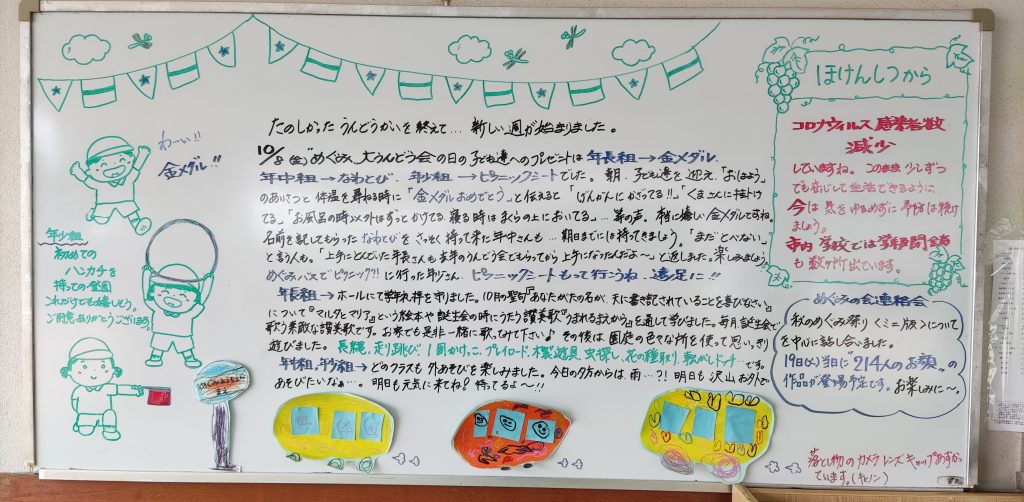 たのしかった うんどうかいを 終えて… 新しい週が始まりました。
10/8(金)"めぐみ 大うんどう会"の日の子ども達へのプレゼントは 年長組→金メダル、
年中組→なわとび、年少組→ピクニックシートでした。朝、子ども達を迎え「おはよう」
のあいさつと体温を尋ねる時に「金メダルおめでとう」と伝えると「げんかんにかざってる!!」「くまさんに掛け
てる」「お風呂の時以外はずっとかけてる。寝る時はまくらの上においてる」…等の声。本当に嬉しい金メダルですね。
名前を記してもらったなわとびをさっそく持って来た年中さんも…期日までには持ってきましょう。「まだとべない」
と言う人も。「上手にとんでいた年長さんも去年のうんどう会でもらってから上手になったんだよ〜」と返しました。楽しみましょう。
めぐみバスでピクニック?!に行った年少さん。ピクニックシートもって行こうね、遠足に!!
年長組→ホールにて礼拝を守りました。10月の聖句『あなたがたの名が、天に書き記されていることを喜びなさい。』
について『マルタとマリア』という絵本や誕生会の時にうたう讃美歌『うまれるまえから』を通して学びました。毎月、誕生会で
歌う素敵な讃美歌です。お家でも是非一緒に歌ってみて下さい♪ その後は園庭の色々な所を使って思いっきり
遊びました。長縄、走り跳び、1回かけっこ、プレイロード、木製遊具、虫探し、花の種取り、転がしドッチ…です。
年中組、年少組→どのクラスも外あそびを楽しみました。今日の夕方からは、雨…?! 明日も沢山お外で
あそびたいなぁ…。明日も元気に来てね? 待ってるよ〜!!
わーい!!
金メダル!!
年少組
初めての
ハンカチを
持っての登園
これだけでも嬉しそう。
ご用意ありがとうございます。
ほけんしつから
コロナウィルス 感染者数
減少
していますね。このまま少しずつ
でも安心して生活できるように
今は気をゆるめずに予防は続け
ましょう。
市内 学校では学級閉鎖
も数ヶ所出ています。
めぐみの会連絡会
秋のめぐみ祭り〈ミニ版〉について
を中心に話し合いました。
19日(火)当日に"214人のお顔"の
作品が登場予定です。お楽しみに〜。
落とし物のカメラレンズキャップあずかっ
ています。(キャノン)